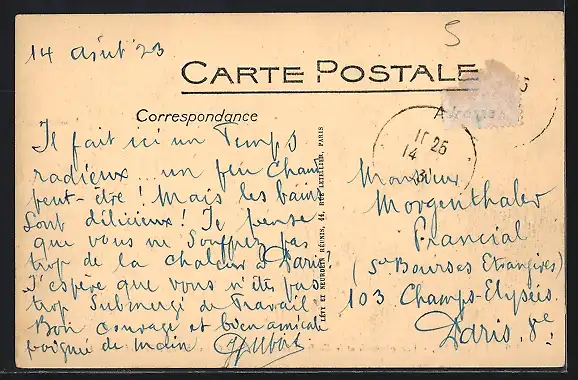 14 août '23
5
CARTE POSTALE
Correspondance
Adresse
Il fait ici un Temps
radieux... un peu chaud
peut-être! Mais les bains
sont délicieux! Je pense
que vous ne souffrez pas
trop de la chaleur à Paris
J'espère que vous n'êtes pas
trop submergé de Travail.
Bon courage et bien amicale
poignée de main
11 25
14
Monsieur
Morgenthaler
Financial
(Sce Bourses Etrangères)
103 Champs-Elysées.
Paris. 8e
LÉVY ET NEURDEIN RÉUNIS, 44, RUE LETELLIER, PARIS